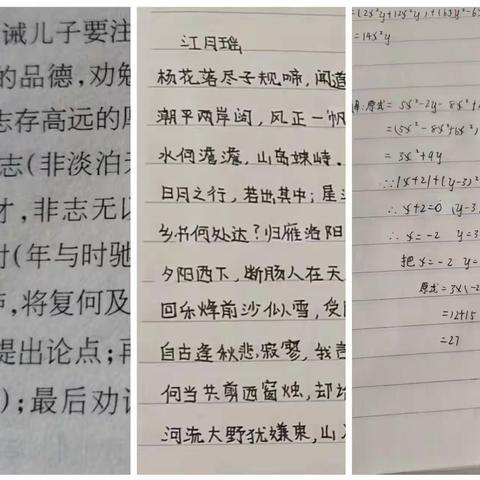 诫儿子要注
的品德,劝勉
志存高远的
志(非淡泊
才,非志无以
时(年与时驰
,将复何及
提出论点;再
);最后劝
江月瑶
杨花落尽子规啼,闻道
潮平两岸阔,风正一帆
水何澹澹,山岛竦峙.
日月之行,若出其中;星
乡书何处达?归雁洛阳
夕阳西下,断肠人在天
回乐烽前沙似雪,受
自古逢秋悲寂寥,我言
何当共剪西窗烛,却
河流大野犹嫌束,山入
=(2x²y+12x²y)+(63y²-6
=14x²y
原式=5x²-2y-8x²+
=(5x²-8x²+6x²)
=3x²+9y
∵|x+2|+(y-3)²
∴x+2=0 (y-3
∴x=-2 y=3
把x=-2 y=
原式=3×(-2
=12+15
=27